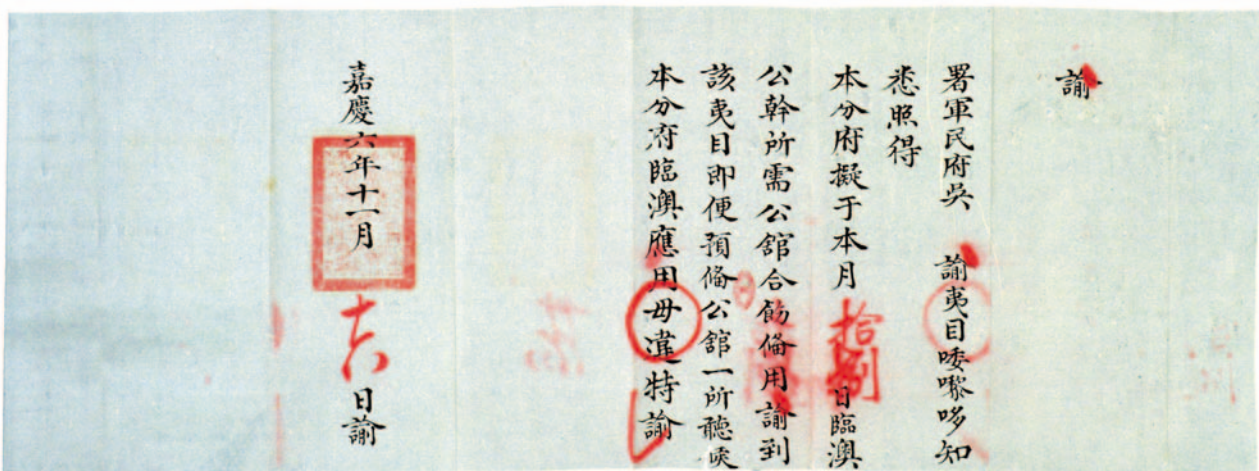 諭
署軍民府吳 諭夷目唩嚟哆知
悉照得
本分府擬于本月拾捌日臨澳
公幹所需公舘合飭俻用諭到
該夷目即便預俻公舘一所聽候
本分府臨澳應用毋違特諭
嘉慶六年十一月十六日諭